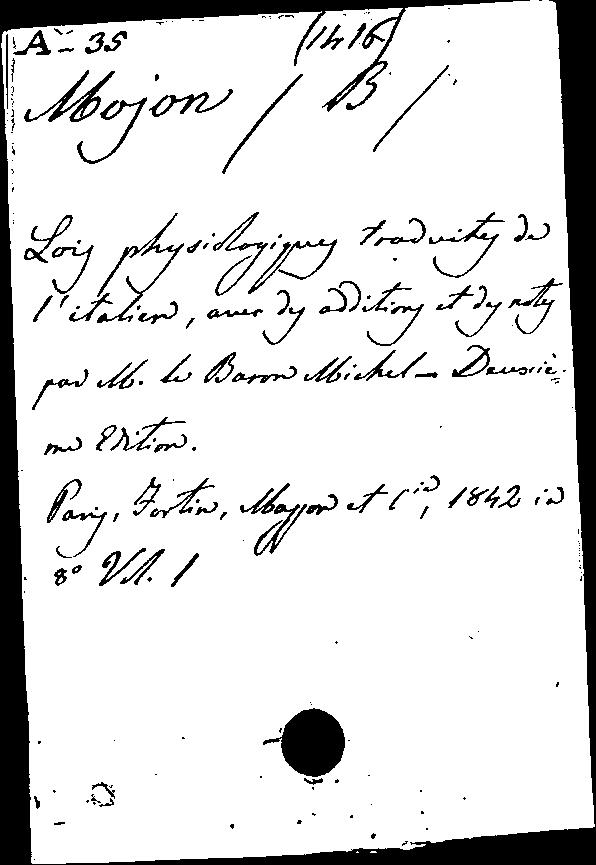 A-35 (1416)
Mojon / B /
Lois physiologiques traduites de
l'italien, avec des additions et des notes
par M. le Baron Michel - Deuxiè-
me Edition.
Paris, Fortin, Masson et Cie, 1842 in
8º Vol. 1